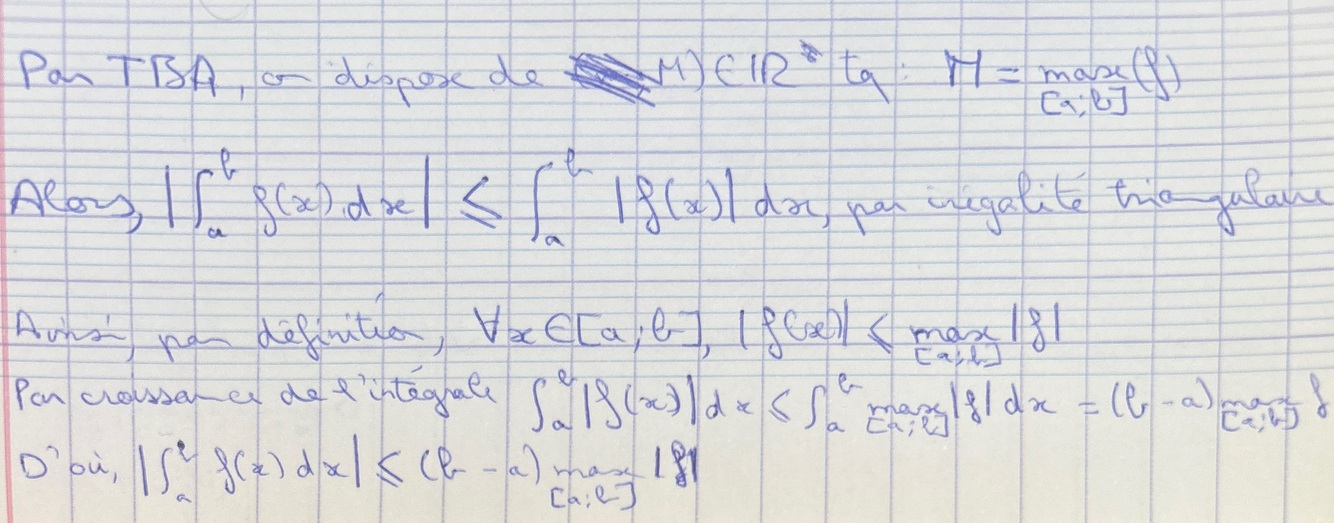 Par TBA, on dispose de M) ∈ ℝ* tq : M = max_[a;b] (f)
Alors, |∫_a^b f(x) dx| ≤ ∫_a^b |f(x)| dx, par inégalité triangulaire
Ainsi, par définition, ∀x ∈ [a;b], |f(x)| ≤ max_[a;b] |f|
Par croissance de l'intégrale ∫_a^b |f(x)| dx ≤ ∫_a^b max_[a;b] |f| dx = (b-a) max_[a;b] f
D'où, |∫_a^b f(x) dx| ≤ (b-a) max_[a;b] |f|